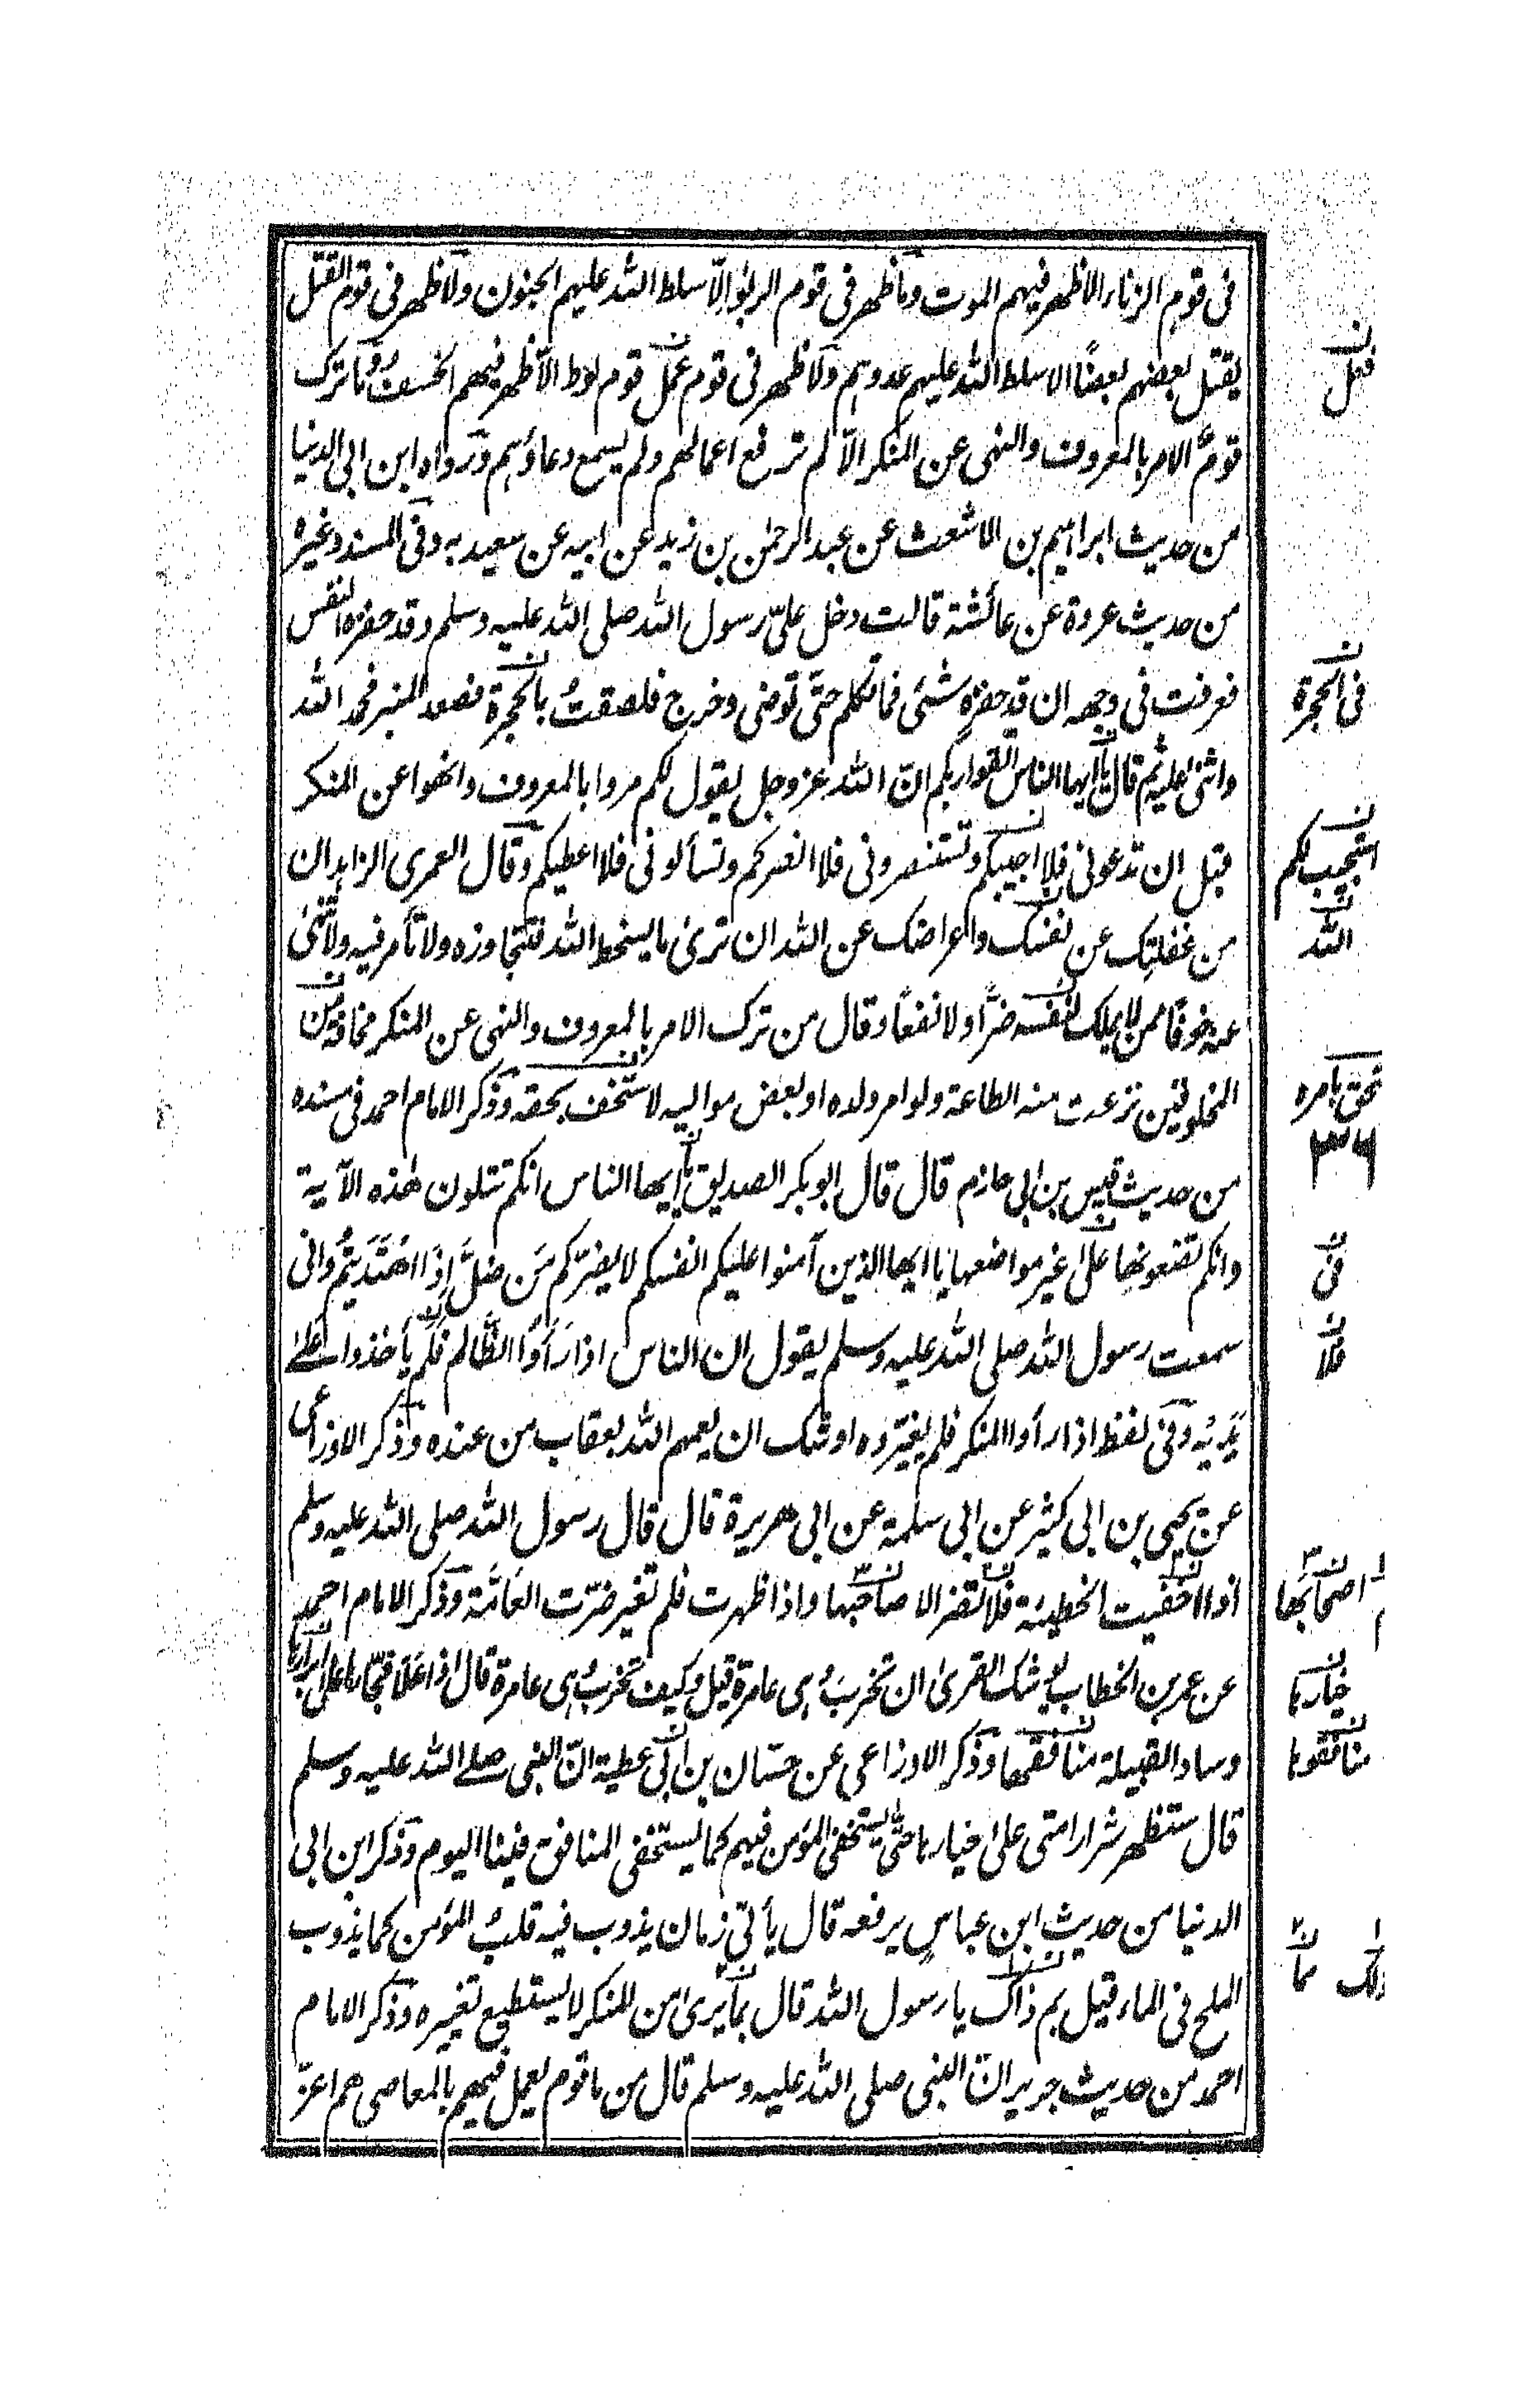 فى قومٍ الزناء الا ظهر فيهم الموت وما ظهر فى قوم الربٰوا الّا سلط الله عليهم الجنون ولا ظهر فى قوم القتل
يقتل بعضهم بعضًا الا سلط الله عليهم عدوهم ولا ظهر فى قوم عمل قوم لوط الّا ظهر فيهم الخسف وما ترك
قومٌ الامر بالمعروف والنهى عن المنكر الّا لم ترفع اعمالهم ولم يسمع دعاؤهم ورواه ابن ابى الدنيا
من حديث ابراهيم بن الاشعث عن عبد الرحمٰن بن زيد عن ابيه عن سعيد به وفى المسند وغيره
من حديث عروة عن عائشة قالت دخل علىّ رسول الله صلى الله عليه وسلم وقد حفزه النفس
فعرفت فى وجهه ان قد حفزه شئى فما تكلم حتّى توضى وخرج فلصقتُ بالحجرة فصعد المنبر فحمد الله
واثنى عليه ثم قال يا ايها الناس اتقوا ربكم انّ الله عزوجل يقول لكم مروا بالمعروف وانهوا عن المنكر
قبل ان تدعونى فلا اجيبكم وتستنصرونى فلا انصركم وتسألونى فلا اعطيكم وقال العمرى الزاهد ان
من غفلتِك عن نفسك واعراضك عن الله ان ترىٰ ما يسخط الله فتتجاوزه ولا تأمر فيه ولا تنهىٰ
عنه خوفًا ممن لا يملك لنفسه ضرًّا ولا نفعًا وقال من ترك الامر بالمعروف والنهى عن المنكر مخافة من
المخلوقين نزعت منه الطاعة ولو امر ولده او بعض مواليه لاستخف بحقه وذكر الامام احمد فى مسنده
من حديث قيس بن ابى حازم قال قال ابوبكر الصديق يا ايها الناس انكم تتلون هٰذه الآية
وانكم تضعونها علىٰ غير مواضعها يا ايها الذين آمنوا عليكم انفسكم لا يضرّكم مَن ضلَّ اِذَا اهْتَدَيتُم وانى
سمعت رسول الله صلى الله عليه وسلم يقول ان الناس اذا رَأَوُا الظَّالم فلم يأخذوا علىٰ
يَدَيْه وفى لفظ اذا رأوا المنكر فلم يغيّروه اوشك ان يعمهم الله بعقاب من عنده وذكر الاوزاعى
عن يحيى بن ابى كثير عن ابى سلمة عن ابى هريرة قال قال رسول الله صلى الله عليه وسلم
اذا اخفيت الخطيئة فلا تضر الا صاحبها واذا ظهرت فلم تغير ضرّت العَامَّة وذكر الامام احمد
عن عمر بن الخطاب يوشك القرىٰ ان تخربَ وهى عامرة قيل وكيف تخربُ وهى عامرة قال اذا عَلا فجّارها على ابرارها
وساد القبيلة منافقها وذكر الاوزاعى عن حسّان بن ابى عطية انّ النبى صلى الله عليه وسلم
قال ستظهر شرار امتى علىٰ خيارها حتّٰى يستخفى المؤمن فيهم كما يستخفى المنافق فينا اليوم وذكر ابن ابى
الدنيا من حديث ابن عباسٍ يرفعه قال يأتى زمان يذوب فيه قلبُ المؤمن كما يذوب
الملح فى الماء قيل بم ذاك يا رسول الله قال بما يرىٰ من المنكر لا يستطيع تغييره وذكر الامام
احمد من حديث جرير انّ النبى صلى الله عليه وسلم قال من ما قوم يعمل فيهم بالمعاصى هم اعزّ
فى الحجرة
استجيب لكم
الله
٣٦
فى
فلا
اصحابها
خيارها
منافقوها